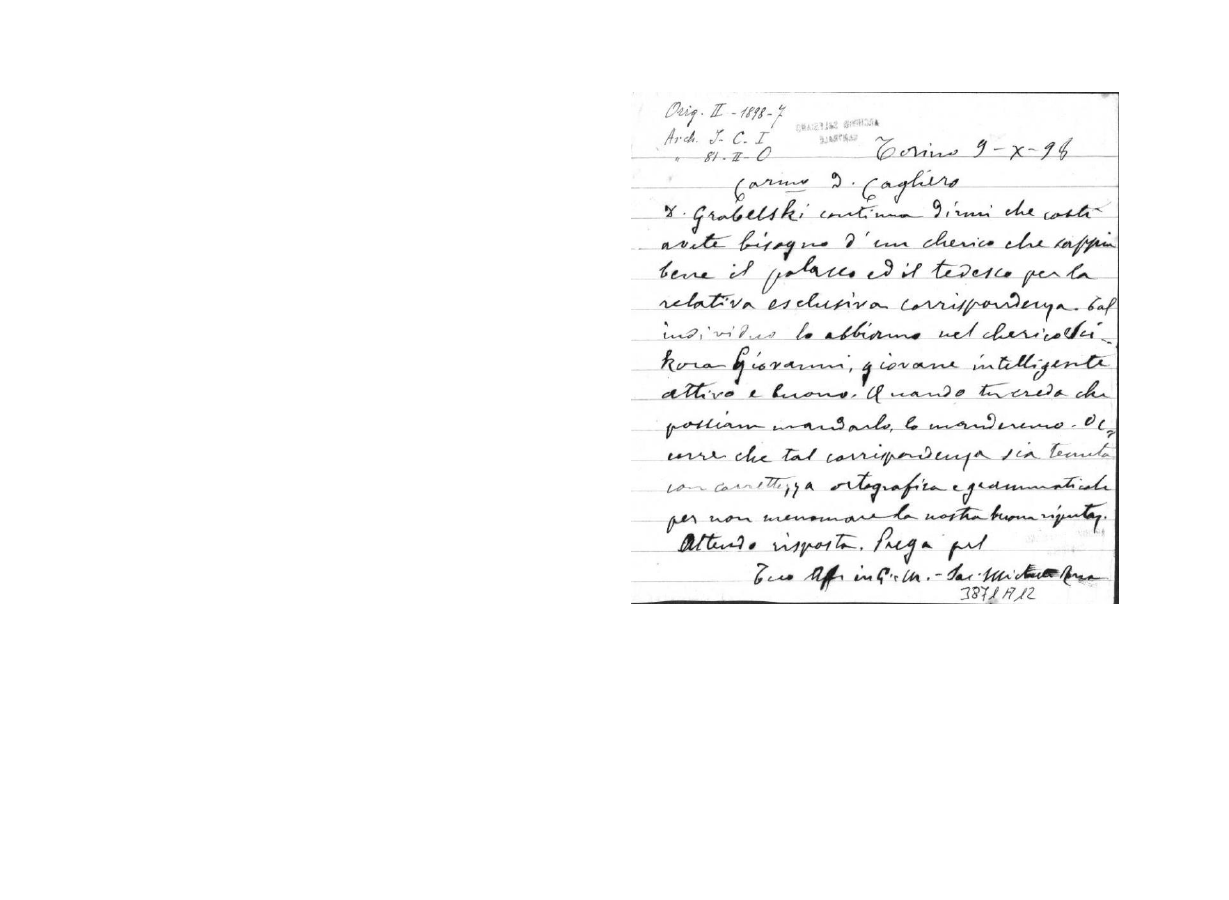 Orig. II - 1898 - 7
Arch. I. C. I
" 81 - II - O
ARCHIVIO SALESIANO
CENTRALE
Torino 9 - X - 98
Carmo D. Cagliero
D. Grabelski continua dirmi che costì
avete bisogno d'un cherico che sappia
bene il polacco ed il tedesco per la
relativa esclusiva corrispondenza. Tal
individuo lo abbiamo nel cherico Si-
kora Giovanni, giovane intelligente
attivo e buono. Quando tu creda che
possiam mandarlo, lo manderemo. Oc-
corre che tal corrispondenza sia tenuta
con correttezza ortografica e grammaticale
per non menomare la nostra buona riputaz.
Attendo risposta. Prega pel
Tuo Aff in G. e M. - Sac. Michele Rua